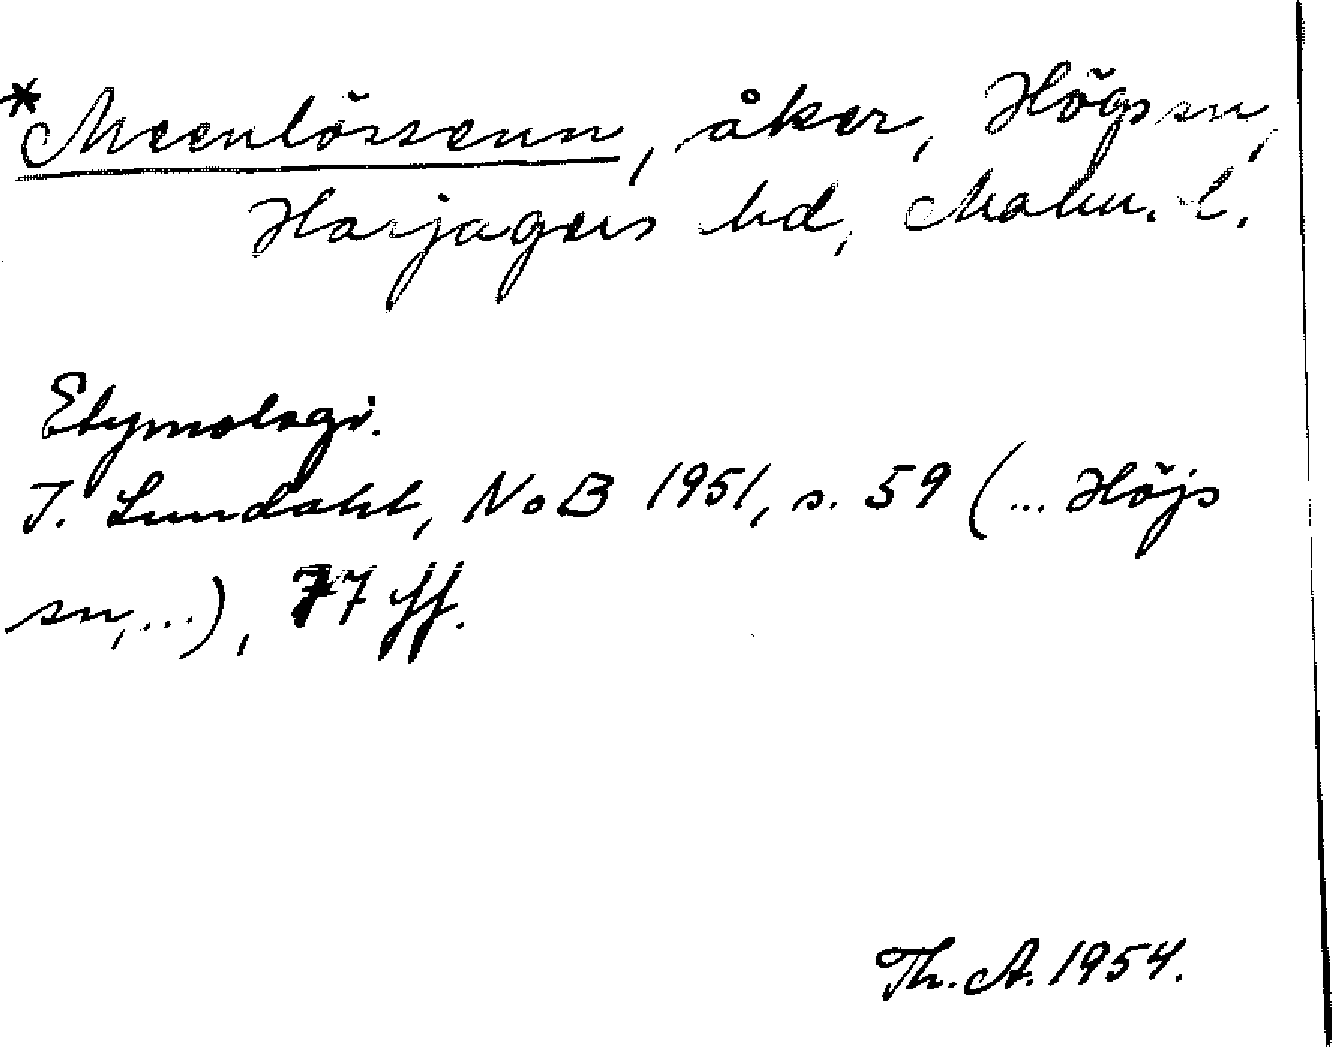 *Meenlössenn, åker, Högs sn,
Harjagers hd, Malm. l.
Etymologi.
I. Lundahl, NoB 1951, s. 59 (... Höjs
sn,...), 77 ff.
Th. A. 1954.